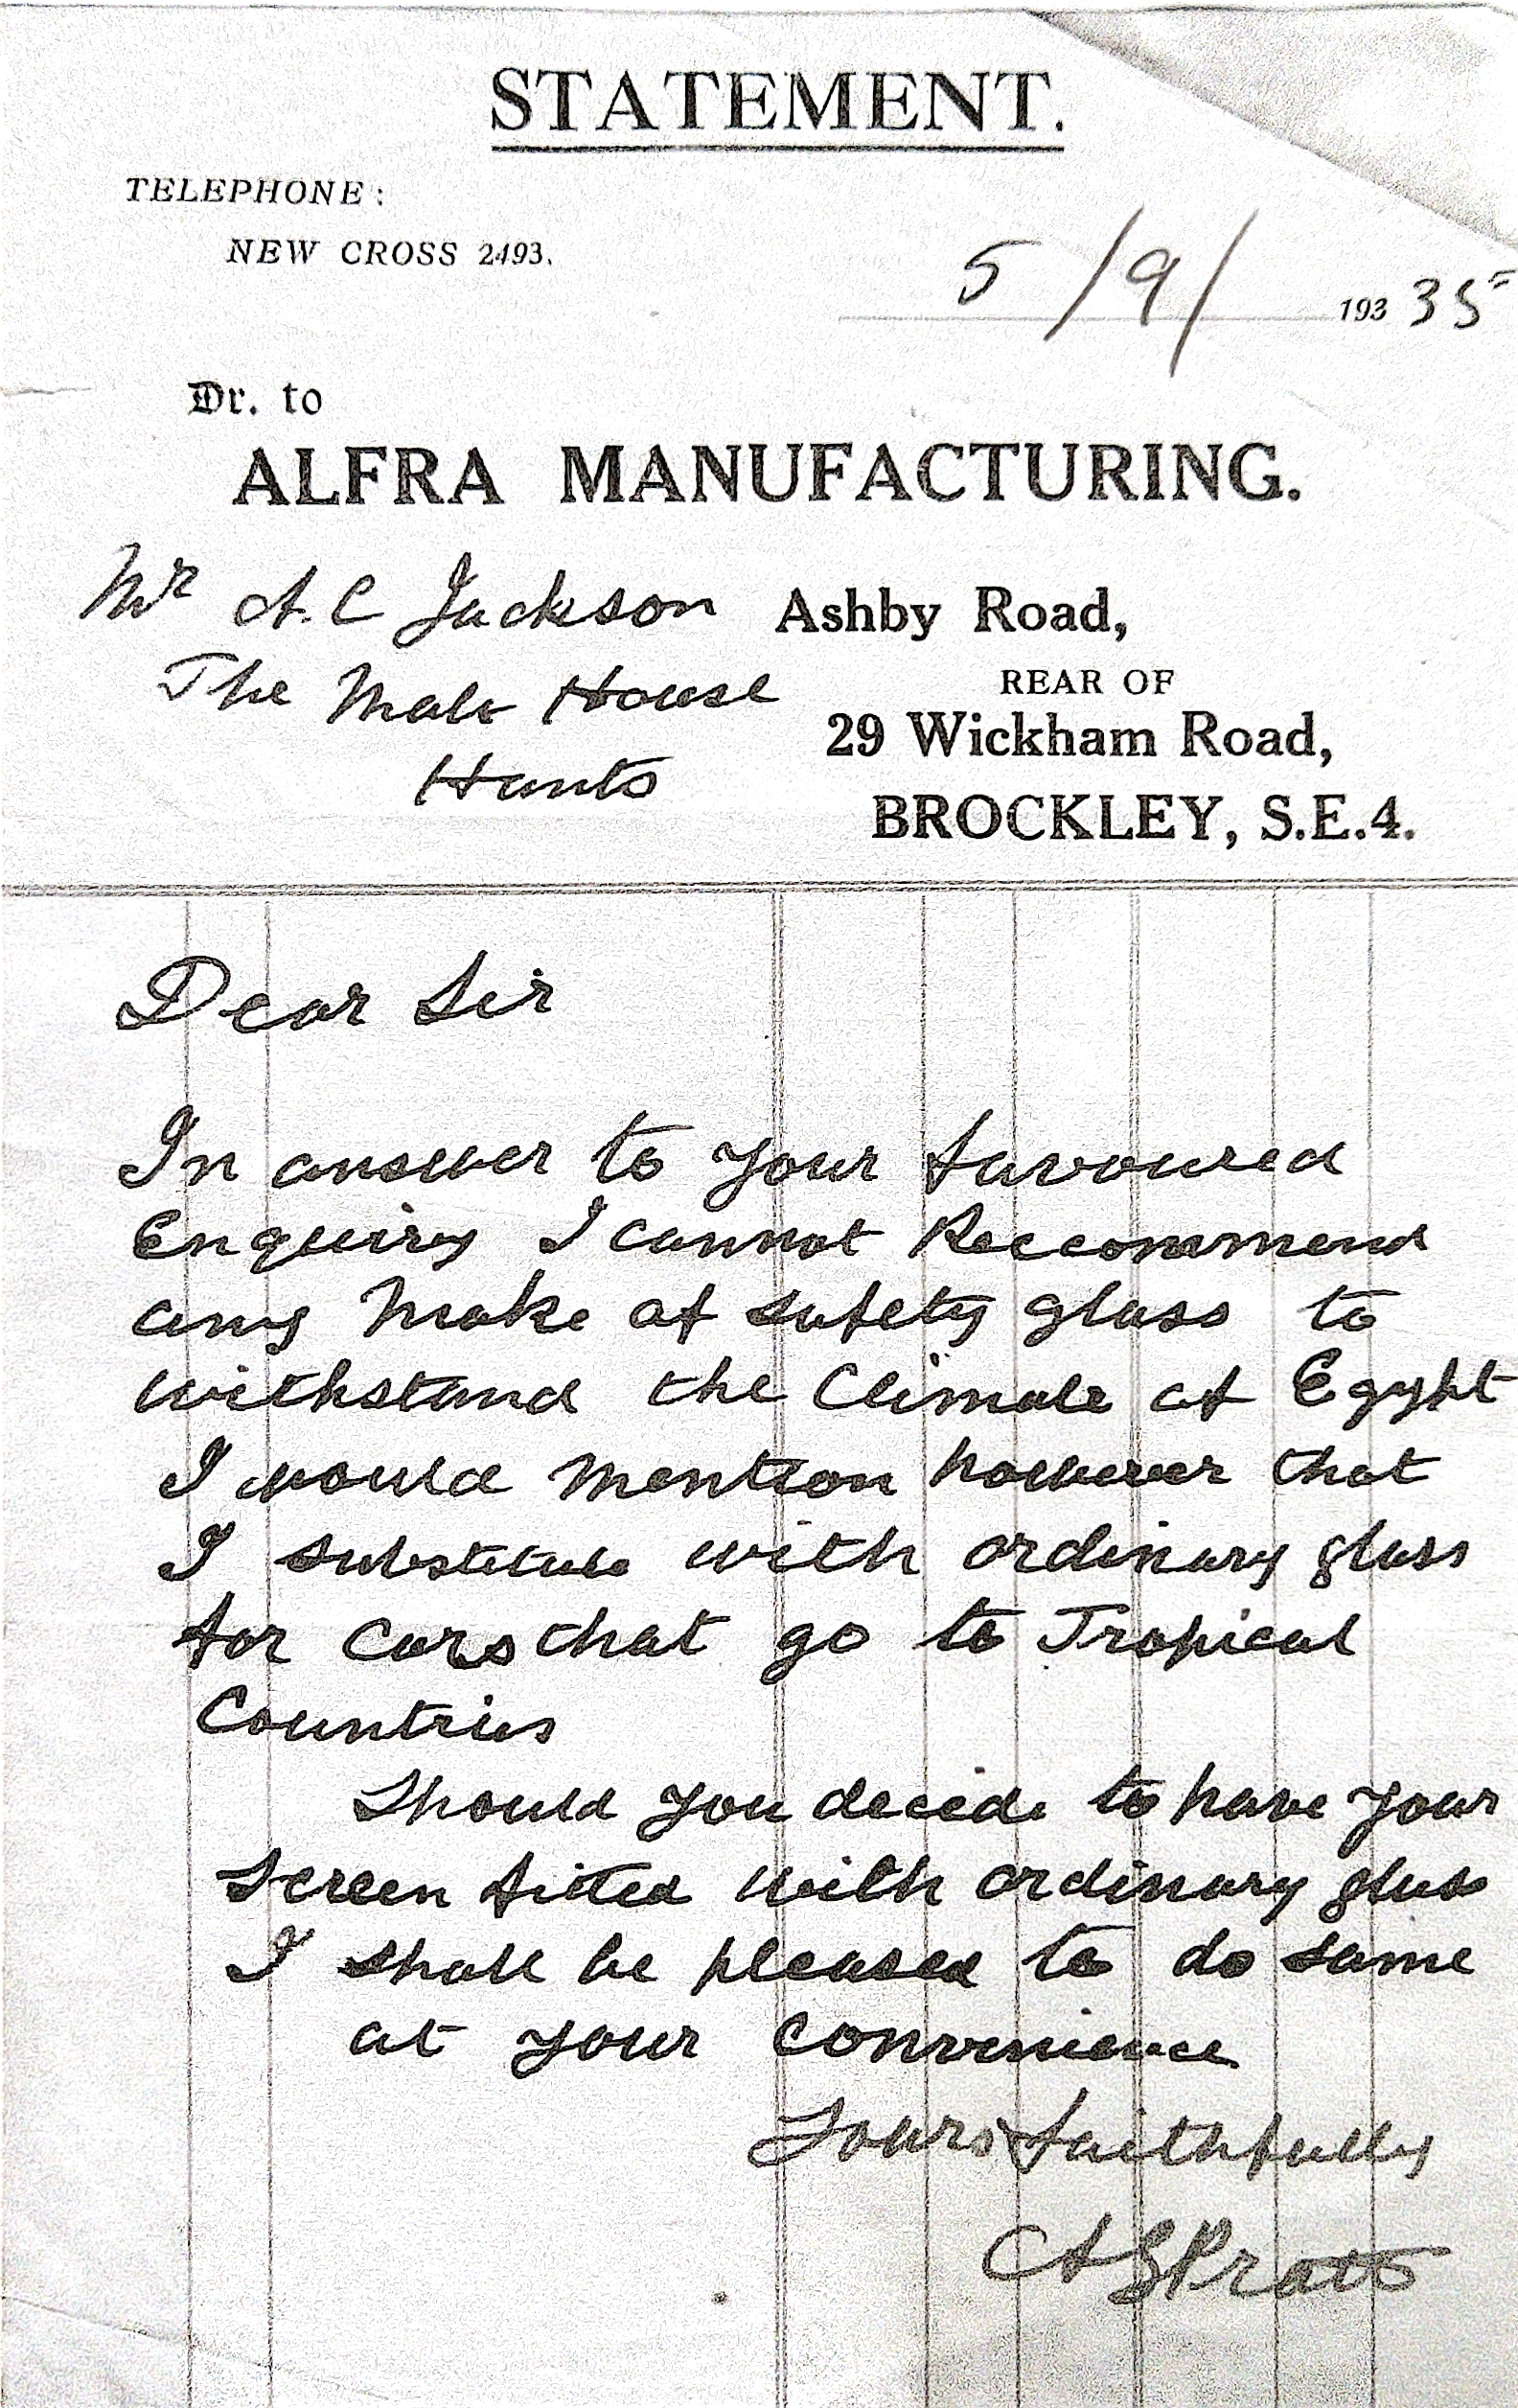 STATEMENT.
TELEPHONE:
NEW CROSS 2493.
5/9/ 193 35
Dr. to
ALFRA MANUFACTURING.
Mr A. C Jackson
Ashby Road,
The Malt House
REAR OF
Hunts
29 Wickham Road,
BROCKLEY, S.E.4.
Dear Sir
In answer to your favoured
Enquiry I cannot Reccommend
any Make of safety glass to
withstand the Climate of Egypt
I would Mention however that
I substitute with ordinary glass
for Cars that go to Tropical
Countries
Should you decide to have your
Screen fitted with ordinary glass
I shall be pleased to do same
at your convenience
Yours faithfully
A S Pratt